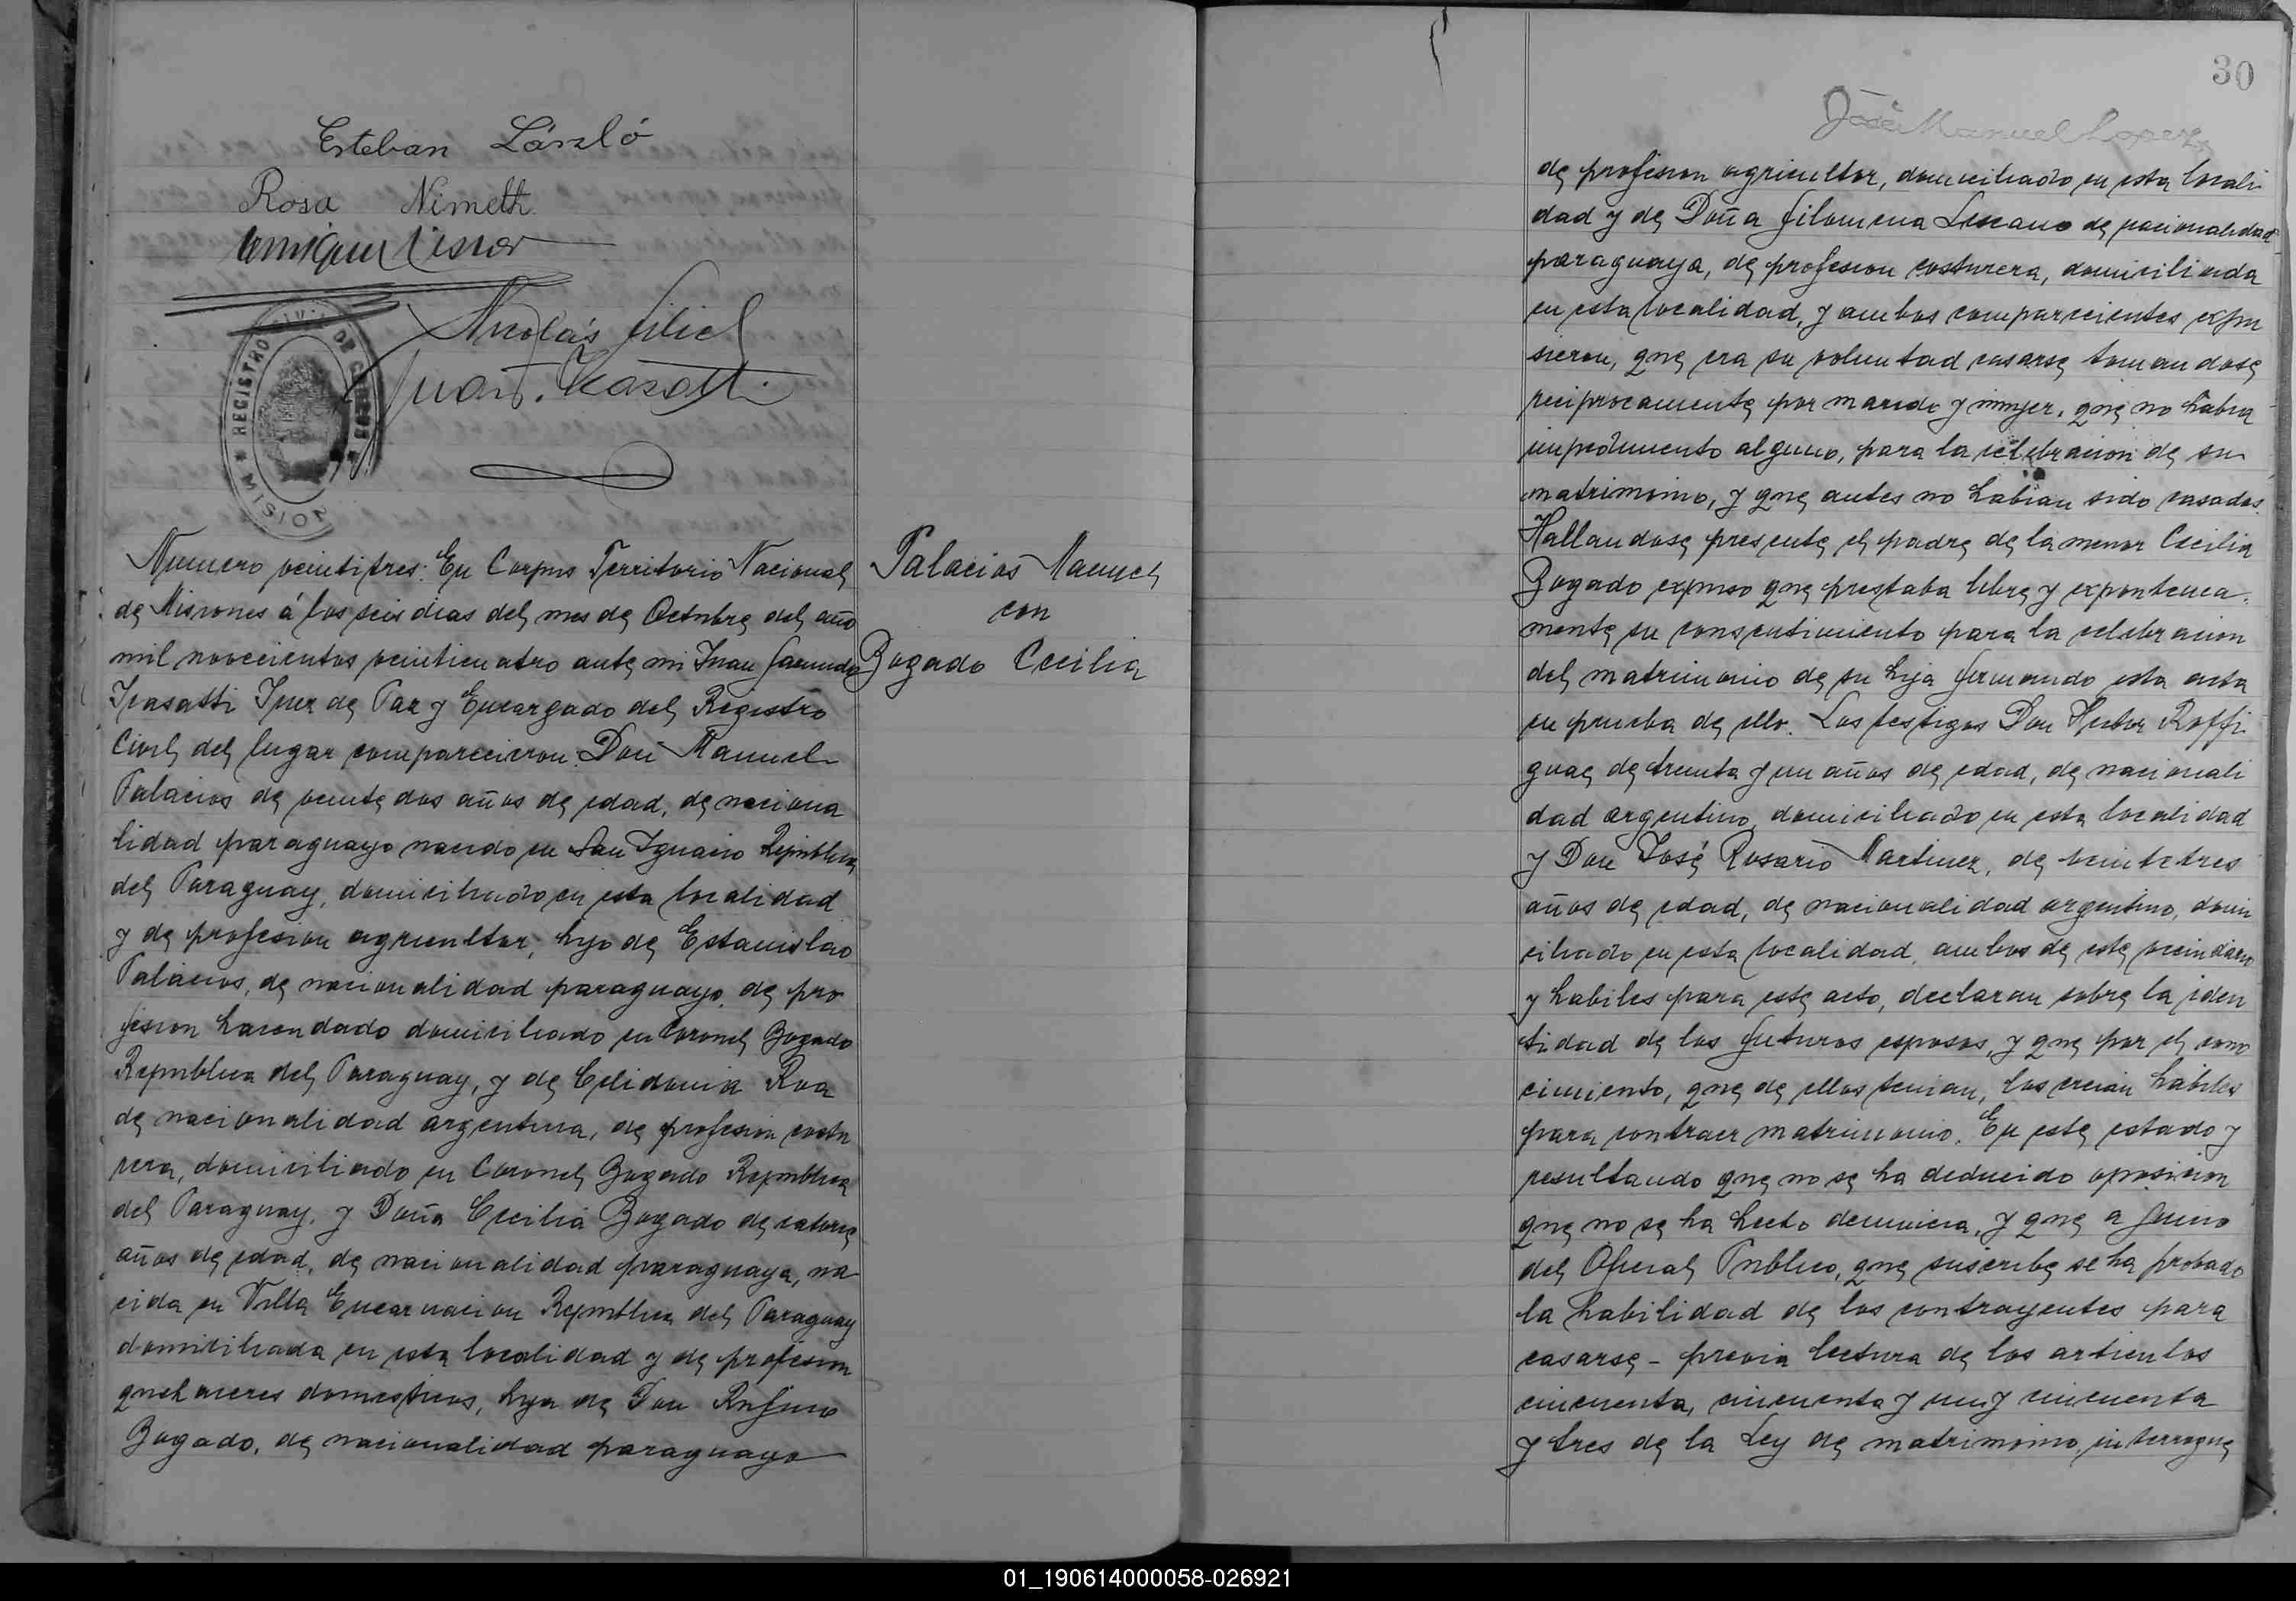 Esteban László
Rosa Nimeth
Nicolás
Juan F.
REGISTRO CIVIL DE CORPUS
MISIONES
Numero veintitres: En Corpus Territorio Nacional
de Misiones á los seis dias del mes de Octubre del año
mil novecientos veinticuatro ante mi Juan Facundo
Irasatti Juez de Paz y Encargado del Registro
Civil del lugar comparecieron: Don Manuel
Palacios de veinte dos años de edad, de naciona
lidad paraguayo nacido en San Ignacio Republica
del Paraguay, domiciliado en esta localidad
y de profesion agricultor, hijo de Estanislao
Palacios, de nacionalidad paraguayo, de pro
fesion hacendado domiciliado en Coronel Bogado
Republica del Paraguay, y de Celidonia Roa
de nacionalidad argentina, de profesion costu
rera, domiciliado en Coronel Bogado Republica
del Paraguay, y Doña Cecilia Bogado de catorce
años de edad, de nacionalidad paraguaya, na
cida en Villa Encarnacion Republica del Paraguay
domiciliada en esta localidad y de profesion
quehaceres domesticos, hija de Don Rufino
Bogado, de nacionalidad paraguayo
Palacios Manuel
con
Bogado Cecilia
30
José Manuel Lopez
de profesion agricultor, domiciliado en esta locali
dad y de Doña Filomena Lescano de nacionalidad
paraguaya, de profesion costurera, domiciliada
en esta localidad, y ambos comparecientes expu
sieron, que era su voluntad casarse tomandose
reciprocamente por marido y mujer, que no habia
impedimento alguno, para la celebracion de su
matrimonio, y que antes no habian sido casados.
Hallandose presente el padre de la menor Cecilia
Bogado expuso que prestaba libre y expontenea
mente su consentimiento para la celebracion
del matrimonio de su hija firmando esta acta
en prueba de ello. Los testigos Don Hector Roffi
guae de treinta y un años de edad, de nacionali
dad argentino, domiciliado en esta localidad
y Don José Rosario Martinez, de veinte tres
años de edad, de nacionalidad argentino, domi
ciliado en esta localidad, ambos de este vecindario
y habiles para este acto, declaran sobre la iden
tidad de los futuros esposos, y que por el cono
cimiento, que de ellos tenian, los creian hábiles
para contraer matrimonio. En este estado y
resultando que no se ha deducido oposicion
que no se ha hecho denuncia, y que a juicio
del Oficial Publico, que suscribe se ha probado
la habilidad de los contrayentes para
casarse - previa lectura de los articulos
cincuenta, cincuenta y un y cincuenta
y tres de la Ley de matrimonio, interrogue
01_190614000058-026921